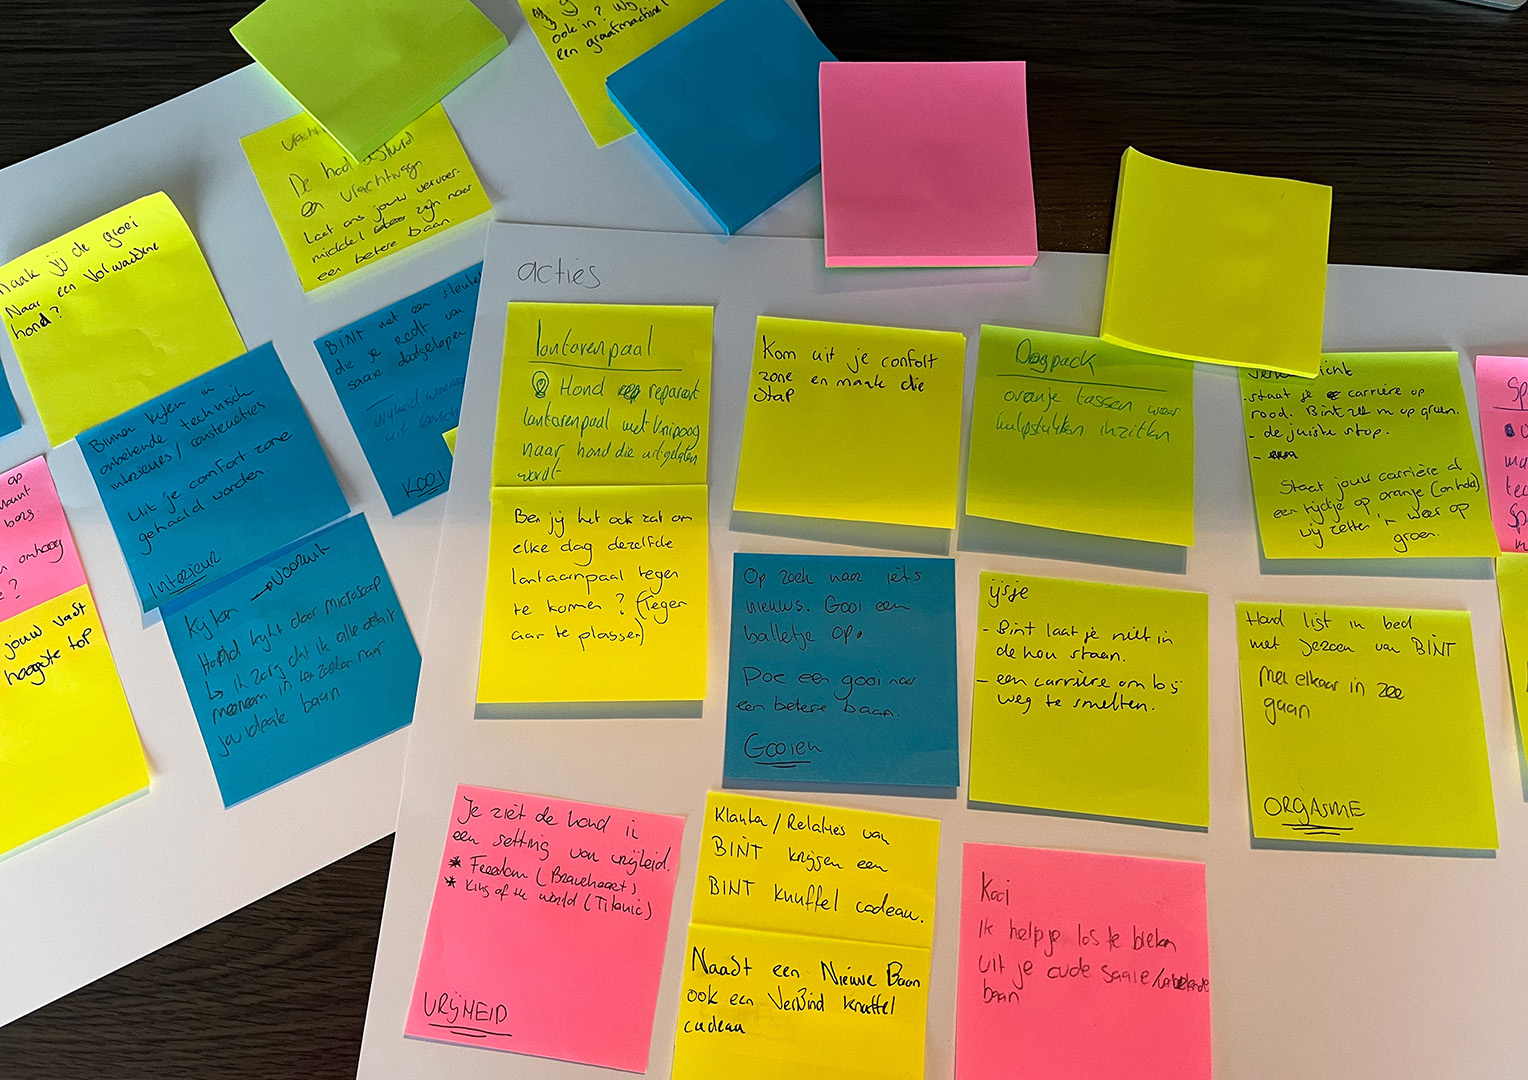 ook in?
een graafmachine!
De hond bestuurd
een vrachtwagn
Laat ons jouw vervoer-
middel zijn naar
een betere baan.
Maak jij de groei
Naar een volwaardine
hond?
BINT met een sleutel
die je redt van
saaie doodgelopen
vrijheid
KOOI
Binnen kijken in
onbekende technisch
interieurs / constructies
Uit je comfort zone
gehaald worden.
Interieur
op
borg.
omhoog
?
jouw vast
hoogste top
Kijken → vooruit
Hond kijkt door microscoop
↳ ik zorg dat ik alle details
meeneem in
jou ideale baan
acties
lantarenpaal
Hond repareert
lantarenpaal met knipoog
naar hond die uitgelaten
wordt
Ben jij het ook zat om
elke dag dezelfde
lantaarnpaal tegen
te komen? (Tegen
aar te plassen)
Kom uit je confort
zone en maak die
stap
Dogpack
oranje tassen waar
hulpstukken inzitten
- staat je carrière op
rood. Bint zet m op groen.
- de juiste stop.
-
Staat jouw carrière al
een tijdje op oranje (on hold)
wij zetten 'm weer op
groen.
Op zoek naar iets
nieuws. Gooi een
balletje op.
Doe een gooi naar
een betere baan.
Gooien
ijsje
- Bint laat je niet in
de kou staan.
- een carrière om bij
weg te smelten.
Hond ligt in bed
met jezoen van BINT
Met elkaar in zee
gaan
ORGASME
Je ziet de hond in
een setting van vrijheid.
* Freedom (Braveheart)
* King of the world (Titanic)
VRIJHEID
Klanten / Relaties van
BINT krijgen een
BINT knuffel cadeau.
Naast een Nieuwe Baan
ook een VerBind knuffel
cadeau
Kooi
Ik help je los te breken
uit je oude saaie
baan